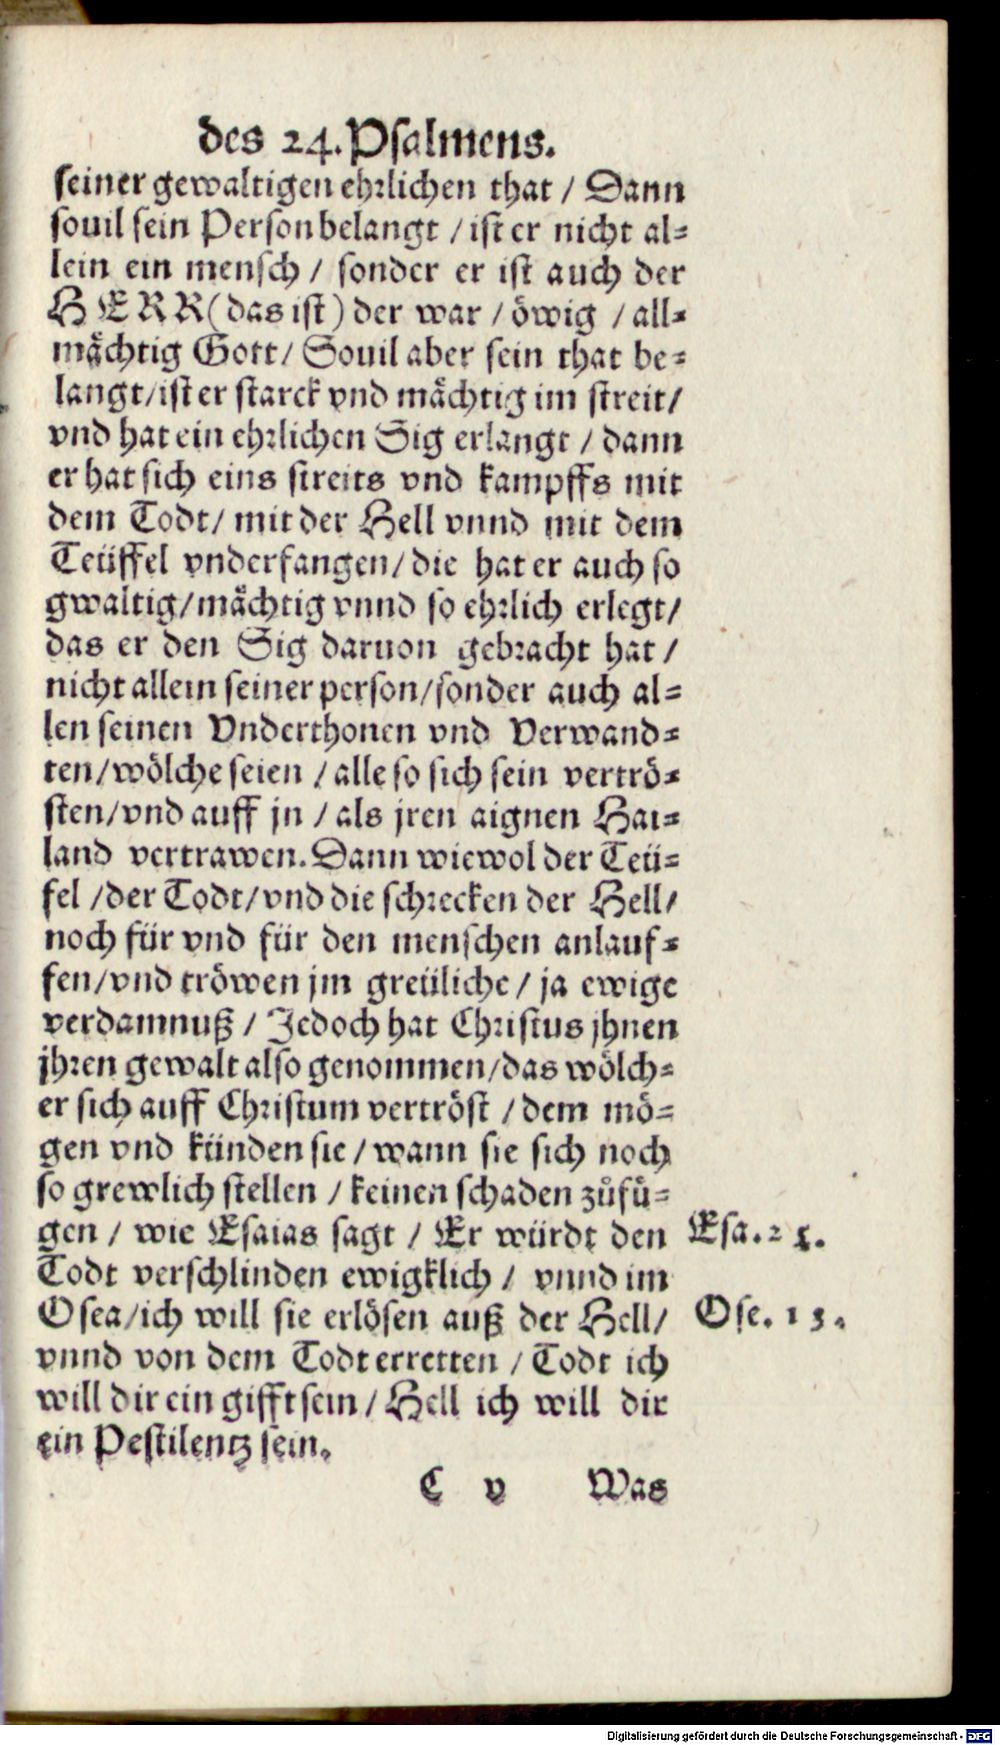 des 24. Psalmens.
seiner gewaltigen ehrlichen that / Dann
souil sein Person belangt / ist er nicht al=
lein ein mensch / sonder er ist auch der
HERR (das ist) der war / öwig / all=
mächtig Gott / Souil aber sein that be=
langt / ist er starck vnd mächtig im streit /
vnd hat ein ehrlichen Sig erlangt / dann
er hat sich eins streits vnd kampffs mit
dem Todt / mit der Hell vnnd mit dem
Teüffel vnderfangen / die hat er auch so
gwaltig / mächtig vnnd so ehrlich erlegt /
das er den Sig daruon gebracht hat /
nicht allein seiner person / sonder auch al=
len seinen Vnderthonen vnd Verwand=
ten / wölche seien / alle so sich sein vertrö=
sten / vnd auff jn / als jren aignen Hai=
land vertrawen. Dann wiewol der Teü=
fel / der Todt / vnd die schrecken der Hell /
noch für vnd für den menschen anlauf=
fen / vnd tröwen jm greüliche / ja ewige
verdamnuß / Jedoch hat Christus jhnen
jhren gewalt also genommen / das wölch=
er sich auff Christum vertröst / dem mö=
gen vnd künden sie / wann sie sich noch
so grewlich stellen / keinen schaden zůfü=
gen / wie Esaias sagt / Er würdt den
Esa. 25.
Todt verschlinden ewigklich / vnnd im
Osea / ich will sie erlösen auß der Hell /
Ose. 13.
vnnd von dem Todt erretten / Todt ich
will dir ein gifft sein / Hell ich will dir
ein Pestilentz sein.
C v Was
Digitalisierung gefördert durch die Deutsche Forschungsgemeinschaft - DFG